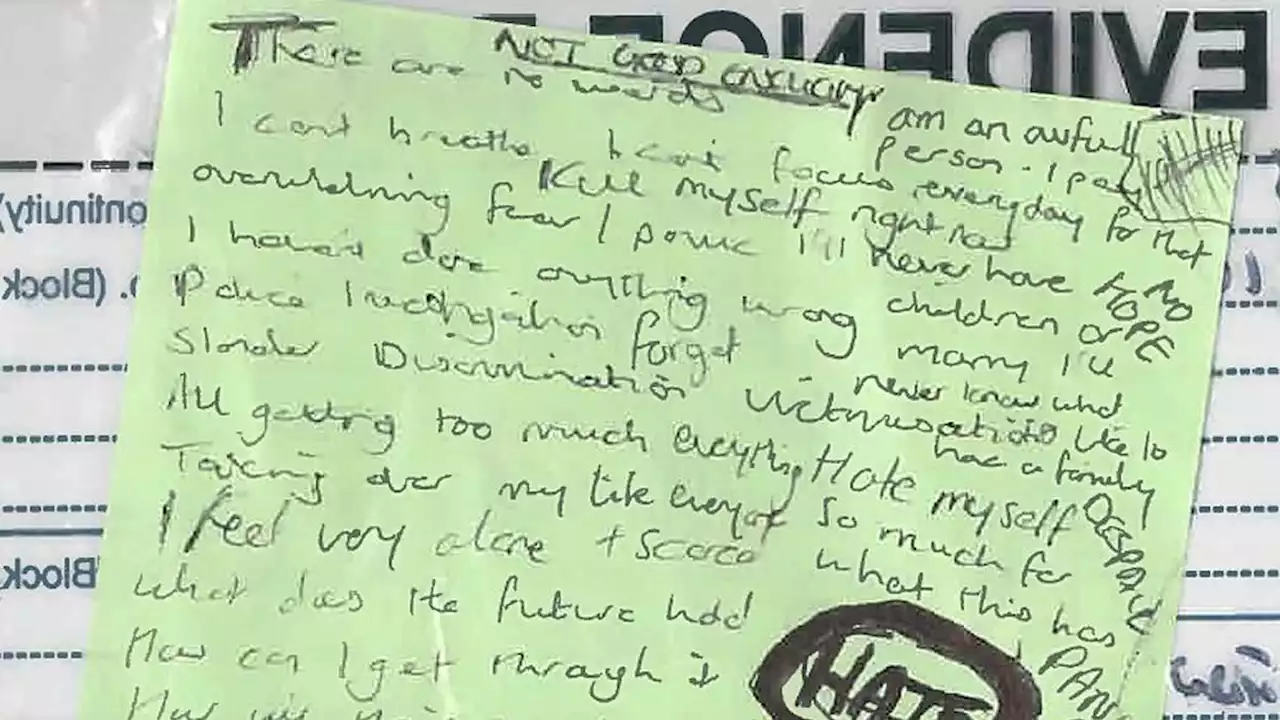 NOT GOOD ENOUGH
There are no words
I can't breathe I can't focus
overwhelming fear / panic
Kill myself right now
I haven't done anything wrong
Police Investigation forget
Slander Discrimination victimisation
All getting too much everything
Taking over my life everyday
I feel very alone + scared
what does the future hold
How can I get through it
am an awful
person. I pay
everyday for that
I'll never have
children or
marry I'll
never know what
like to
have a family
Hate myself
so much for
what this has
NO
HOPE
DESPAIR
PANIC
HATE
EVIDENCE
ontinuity)
o. (Block
Block